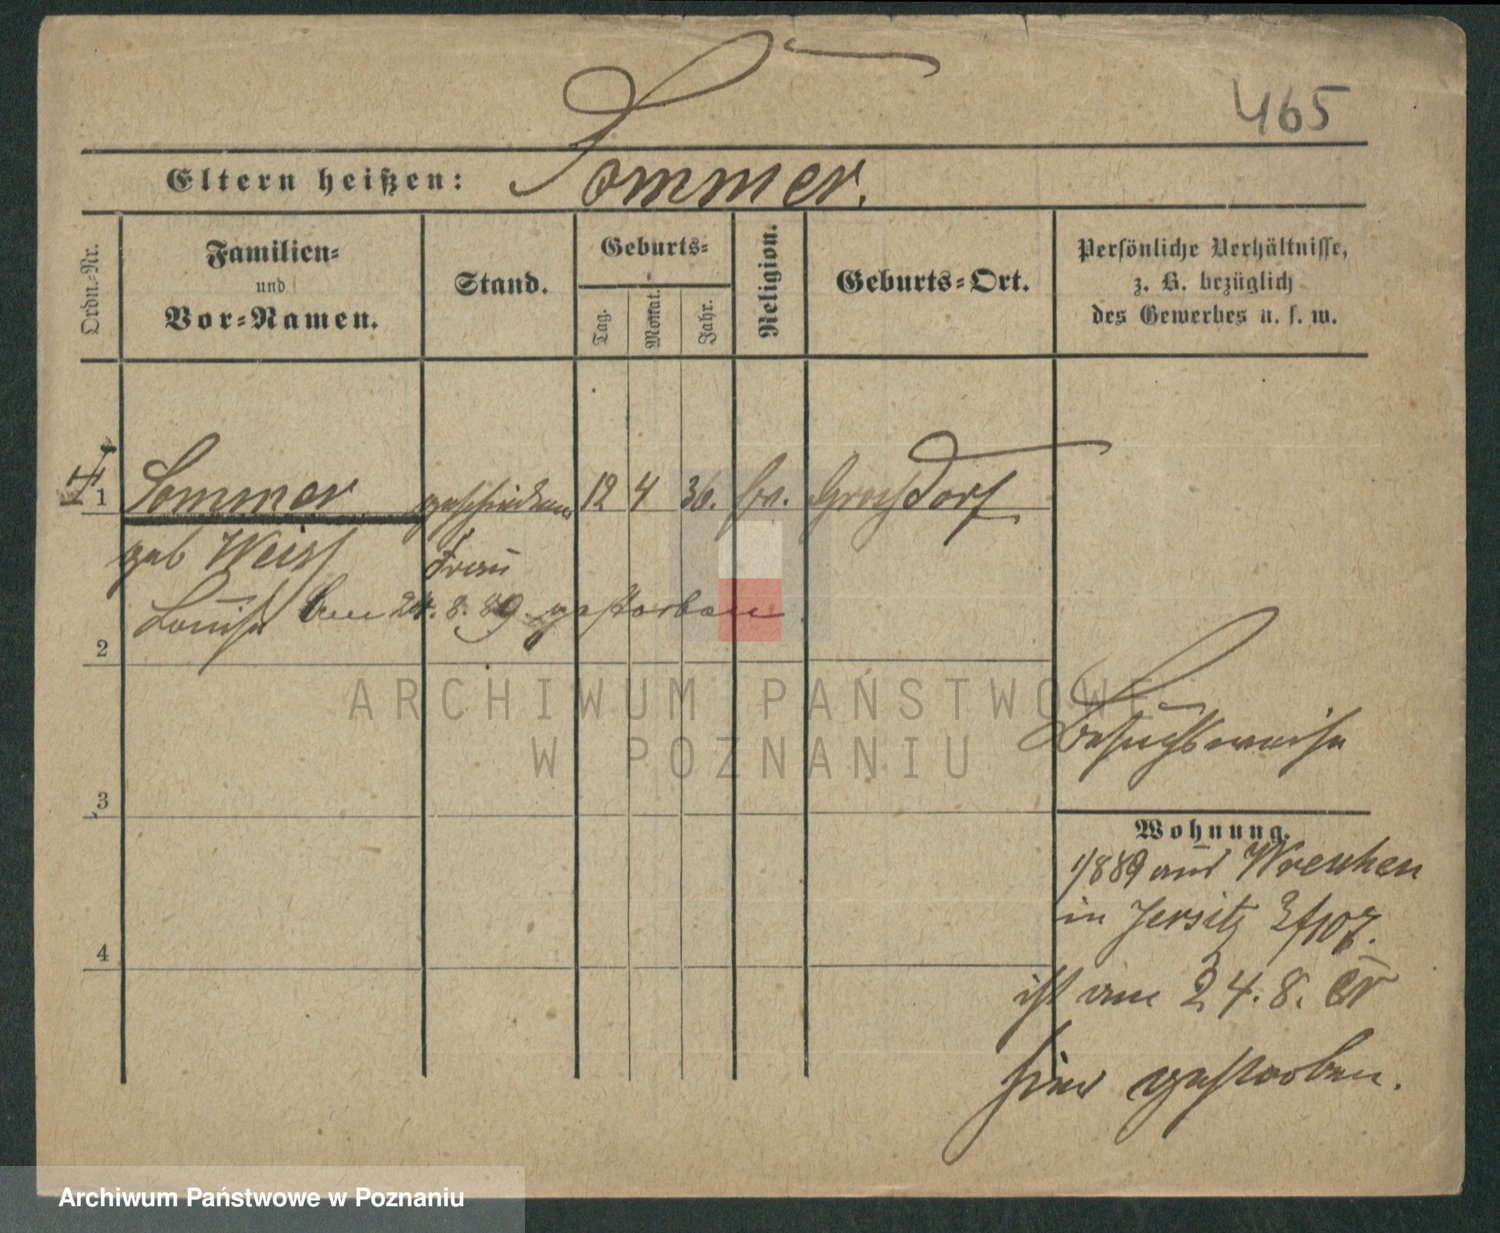 465
Eltern heißen: Sommer.
Ordn.-Nr.
Familien-
und
Vor-Namen.
Stand.
Geburts-
Tag.
Monat.
Jahr.
Religion.
Geburts-Ort.
Persönliche Verhältnisse,
z. B. bezüglich
des Gewerbes u. s. w.
1 Sommer geschiedene 12 4 36.
geb Weiss Frau
Louise Am 24.8.89 gestorben.
2
ARCHIWUM PAŃSTWOWE
W POZNANIU
Besuchsweise
3
Wohnung.
1/889 aus Wreschen
in Jersitz
4
ist am 24.8. cr
hier gestorben.
Archiwum Państwowe w Poznaniu